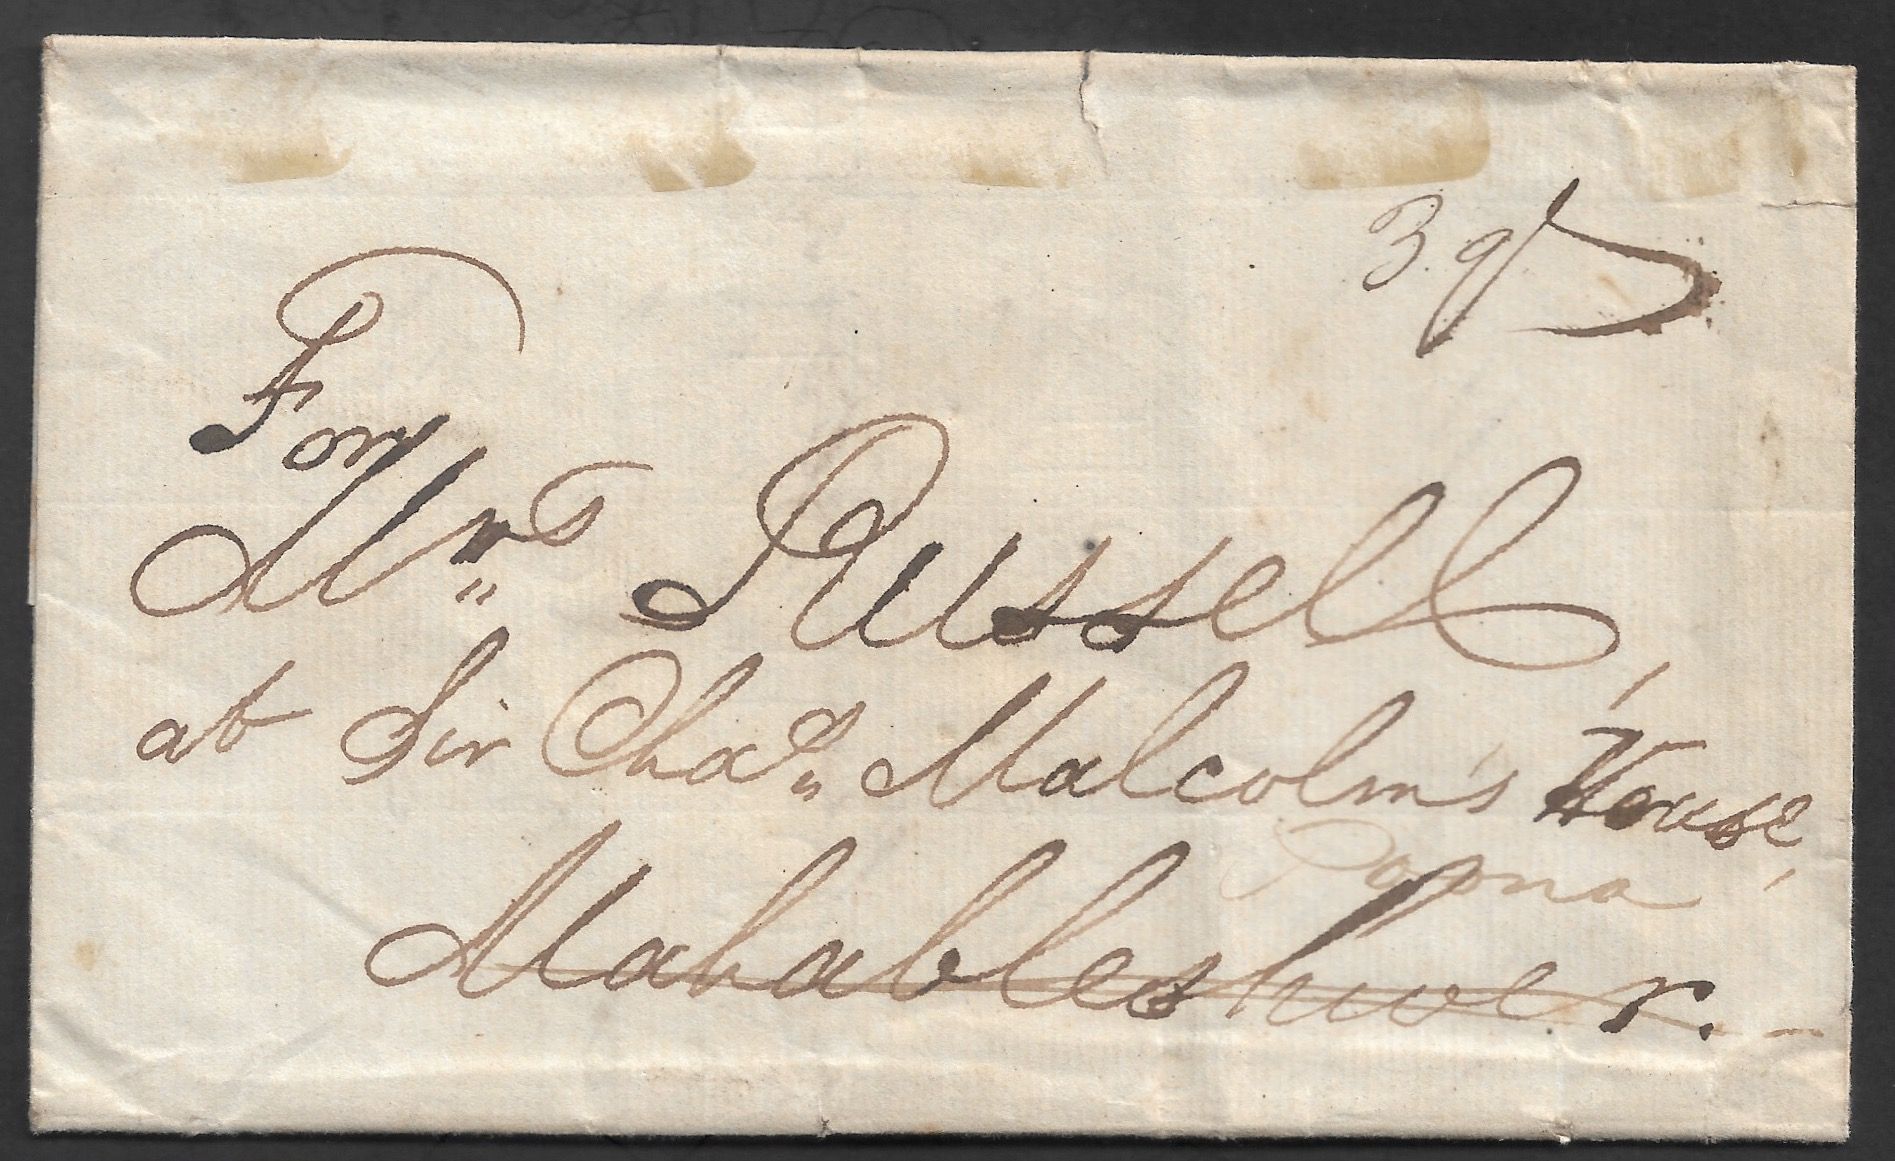 3.
For
Mrs Russell,
at Sir Chas Malcolm's House,
Poona
Mahableshwer.